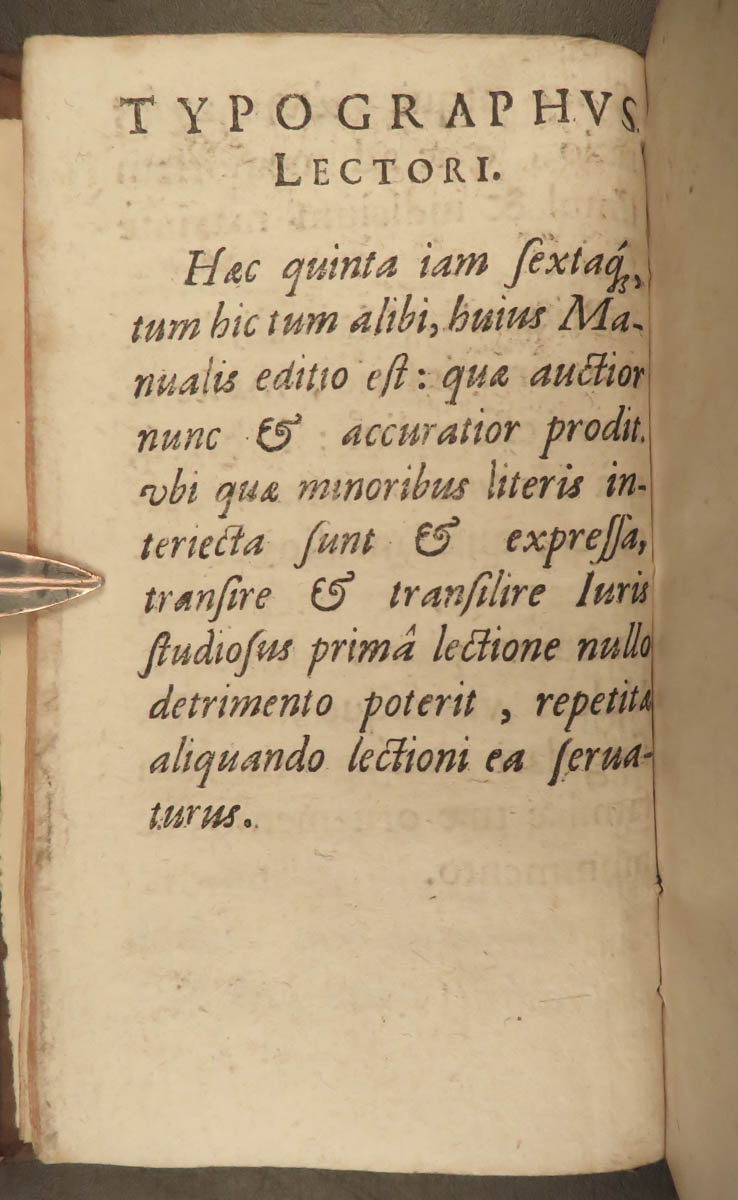 TYPOGRAPHVS
LECTORI.
Hæc quinta iam ſextaq́ꝫ,
tum hic tum alibi, huius Ma-
nualis editio eſt: quæ auctior
nunc & accuratior prodit.
vbi quæ minoribus literis in-
teriecta ſunt & expreſſa,
tranſire & tranſilire Iuris
ſtudioſus primâ lectione nullo
detrimento poterit, repetitæ
aliquando lectioni ea ſerua-
turus.